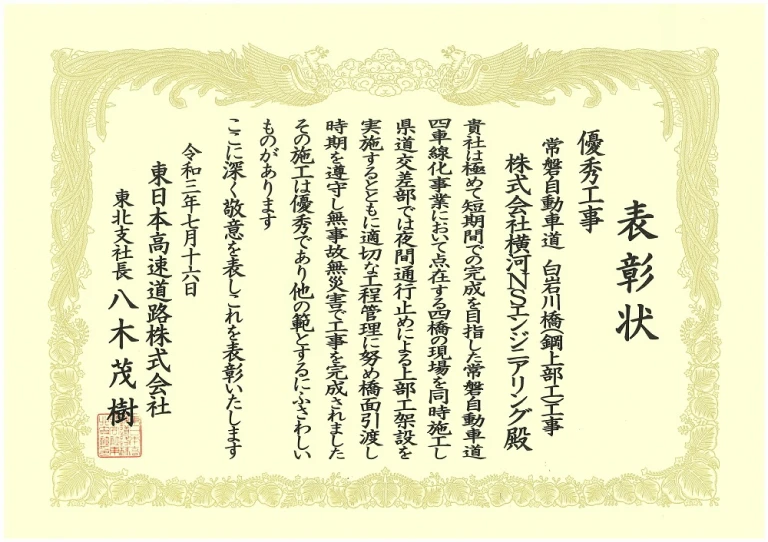 表彰状
優秀工事
常磐自動車道 白岩川橋(鋼上部工)工事
株式会社横河NSエンジニアリング殿
貴社は極めて短期間での完成を目指した常磐自動車道
四車線化事業において点在する四橋の現場を同時施工し
県道交差部では夜間通行止めによる上部工架設を
実施するとともに適切な工程管理に努め橋面引渡し
時期を遵守し無事故無災害で工事を完成されました
その施工は優秀であり他の範とするにふさわしい
ものがあります
ここに深く敬意を表しこれを表彰いたします
令和三年七月十六日
東日本高速道路株式会社
東北支社長 八木茂樹